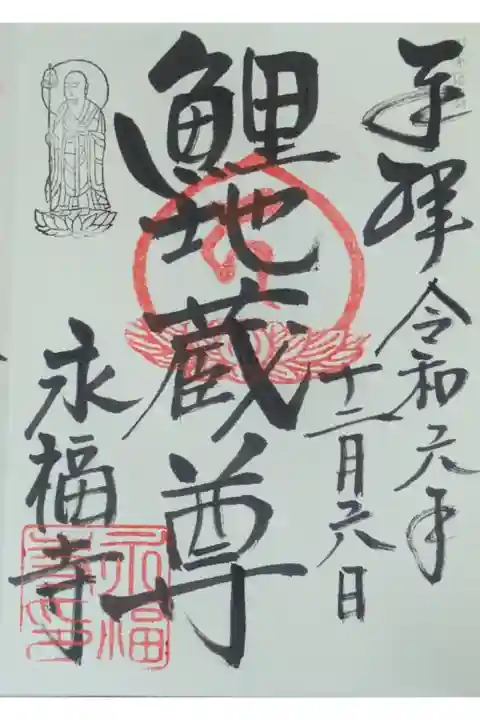 奉拝
令和六年
十二月六日
鯉地蔵尊
永福寺
永福
寺印